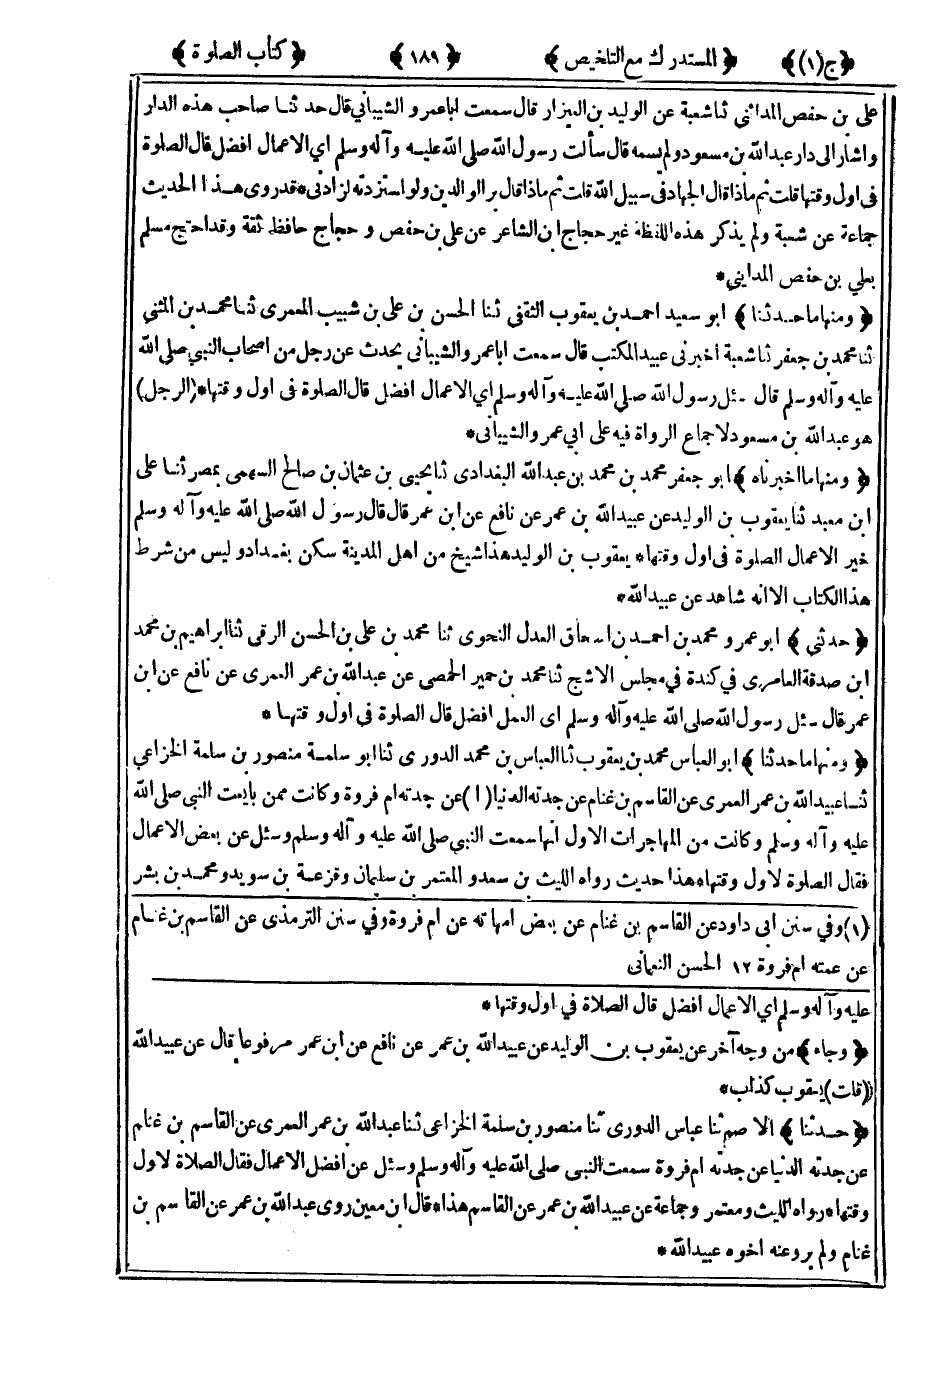 ﴿ج(١)﴾ ﴿المستدرك مع التلخيص﴾ ﴿١٨٩﴾ ﴿كتاب الصلوة﴾
على بن حفص المدائني ثنا شعبة عن الوليد بن العيزار قال سمعت ابا عمرو الشيباني قال حدثنا صاحب هذه الدار
واشار الى دار عبدالله بن مسعود ولم يسمه قال سألت رسول الله صلى الله عليه وآله وسلم اي الاعمال افضل قال الصلوة
فى اول وقتها قلت ثم ماذا قال الجهاد فى سبيل الله قلت ثم ماذا قال بر الوالدين ولو استزدته لزادنى * قد روى هذا الحديث
جماعة عن شعبة ولم يذكر هذه اللفظة غير حجاج ابن الشاعر عن على بن حفص و حجاج حافظ ثقة وقد احتج مسلم
بعلي بن حفص المدايني *
﴿ ومنها ما حدثنا ﴾ ابو سعيد احمد بن يعقوب الثقفى ثنا الحسن بن على بن شبيب المعمرى ثنا محمد بن المثني
ثنا محمد بن جعفر ثنا شعبة اخبرنى عبيد المكتب قال سمعت ابا عمرو الشيبانى يحدث عن رجل من اصحاب النبي صلى الله
عليه وآله وسلم قال سئل رسول الله صلى الله عليه وآله وسلم اي الاعمال افضل قال الصلوة فى اول وقتها * (الرجل)
هو عبدالله بن مسعود لاجماع الرواة فيه على ابي عمرو الشيبانى *
﴿ ومنها ما اخبرناه ﴾ ابو جعفر محمد بن محمد بن عبدالله البغدادى ثنا يحيى بن عثمان بن صالح السهمى بمصر ثنا على
ابن معبد ثنا يعقوب بن الوليد عن عبيدالله بن عمر عن نافع عن ابن عمر قال قال رسول الله صلى الله عليه وآله وسلم
خير الاعمال الصلوة فى اول وقتها * يعقوب بن الوليد هذا شيخ من اهل المدينة سكن بغداد وليس من شرط
هذا الكتاب الا انه شاهد عن عبيدالله *
﴿ حدثني ﴾ ابو عمرو محمد بن احمد بن اسحاق العدل النحوى ثنا محمد بن على بن الحسن الرقى ثنا ابراهيم بن محمد
ابن صدقة العامرى في كندة في مجلس الاشج ثنا محمد بن حمير الحمصى عن عبدالله بن عمر العمرى عن نافع عن ابن
عمر قال سئل رسول الله صلى الله عليه وآله وسلم اى العمل افضل قال الصلوة فى اول وقتها *
﴿ ومنها ما حدثنا ﴾ ابو العباس محمد بن يعقوب ثنا العباس بن محمد الدورى ثنا ابو سلمة منصور بن سلمة الخزاعي
ثنا عبيدالله بن عمر العمرى عن القاسم بن غنام عن جدته الدنيا (١) عن جدته ام فروة وكانت ممن بايعت النبي صلى الله
عليه وآله وسلم وكانت من المهاجرات الاول انها سمعت النبي صلى الله عليه وآله وسلم وسئل عن بعض الاعمال
فقال الصلوة لاول وقتها * هذا حديث رواه الليث بن سعد و المعتمر بن سليمان وقزعة بن سويد و محمد بن بشر
(١) وفي سنن ابى داود عن القاسم بن غنام عن بعض امهاته عن ام فروة وفي سنن الترمذى عن القاسم بن غنام
عن عمته ام فروة ١٢ الحسن النعمانى
عليه وآله وسلم اي الاعمال افضل قال الصلاة في اول وقتها *
﴿ وجاء ﴾ من وجه آخر عن يعقوب بن الوليد عن عبيدالله بن عمر عن نافع عن ابن عمر مرفوعا قال عن عبيدالله
(قلت) يعقوب كذاب *
﴿ حدثنا ﴾ الاصم ثنا عباس الدورى ثنا منصور بن سلمة الخزاعى ثنا عبدالله بن عمر العمرى عن القاسم بن غنام
عن جدته الدنيا عن جدته ام فروة سمعت النبي صلى الله عليه وآله وسلم وسئل عن افضل الاعمال فقال الصلاة لاول
وقتها * رواه الليث و معتمر وجماعة عن عبيدالله بن عمر عن القاسم هذا * قال ابن معين روى عبدالله بن عمر عن القاسم بن
غنام ولم يرو عنه اخوه عبيدالله *